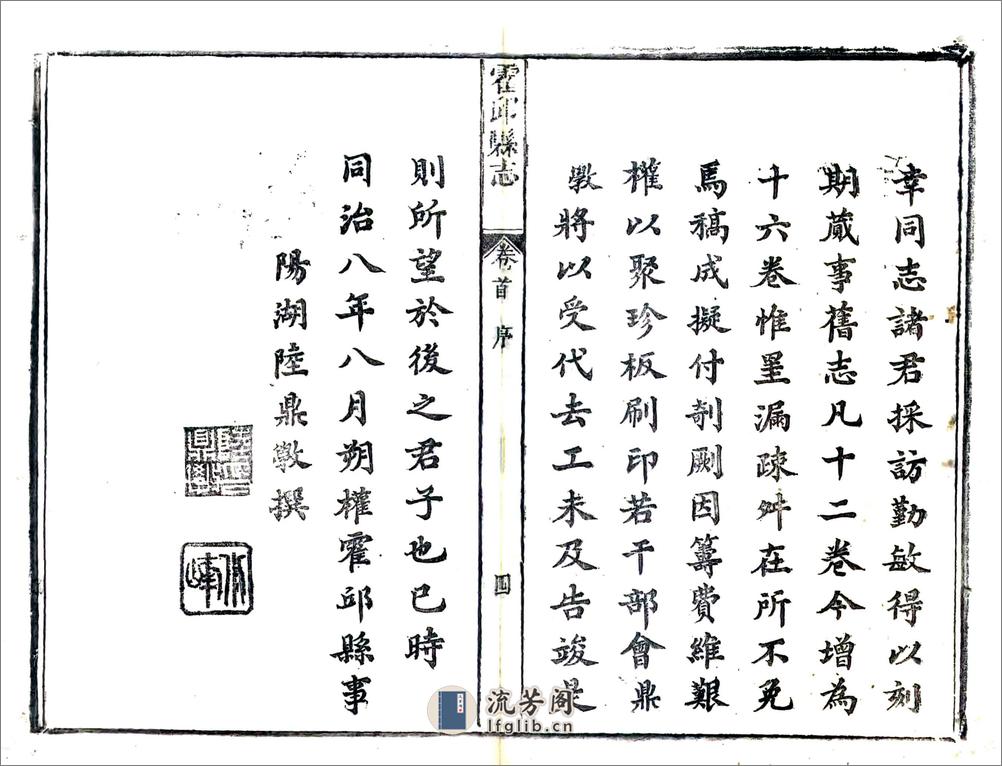 幸同志諸君採訪勤敏得以刻
期蕆事舊志凡十二卷今增為
十六卷惟罣漏踈舛在所不免
焉稿成擬付剞劂因籌費維艱
權以聚珍板刷印若干部會鼎
斆將以受代去工未及告竣是
霍邱縣志
卷首
序
四
則所望於後之君子也已時
同治八年八月朔權霍邱縣事
陽湖陸鼎斆撰
流芳阁
lfglib.cn